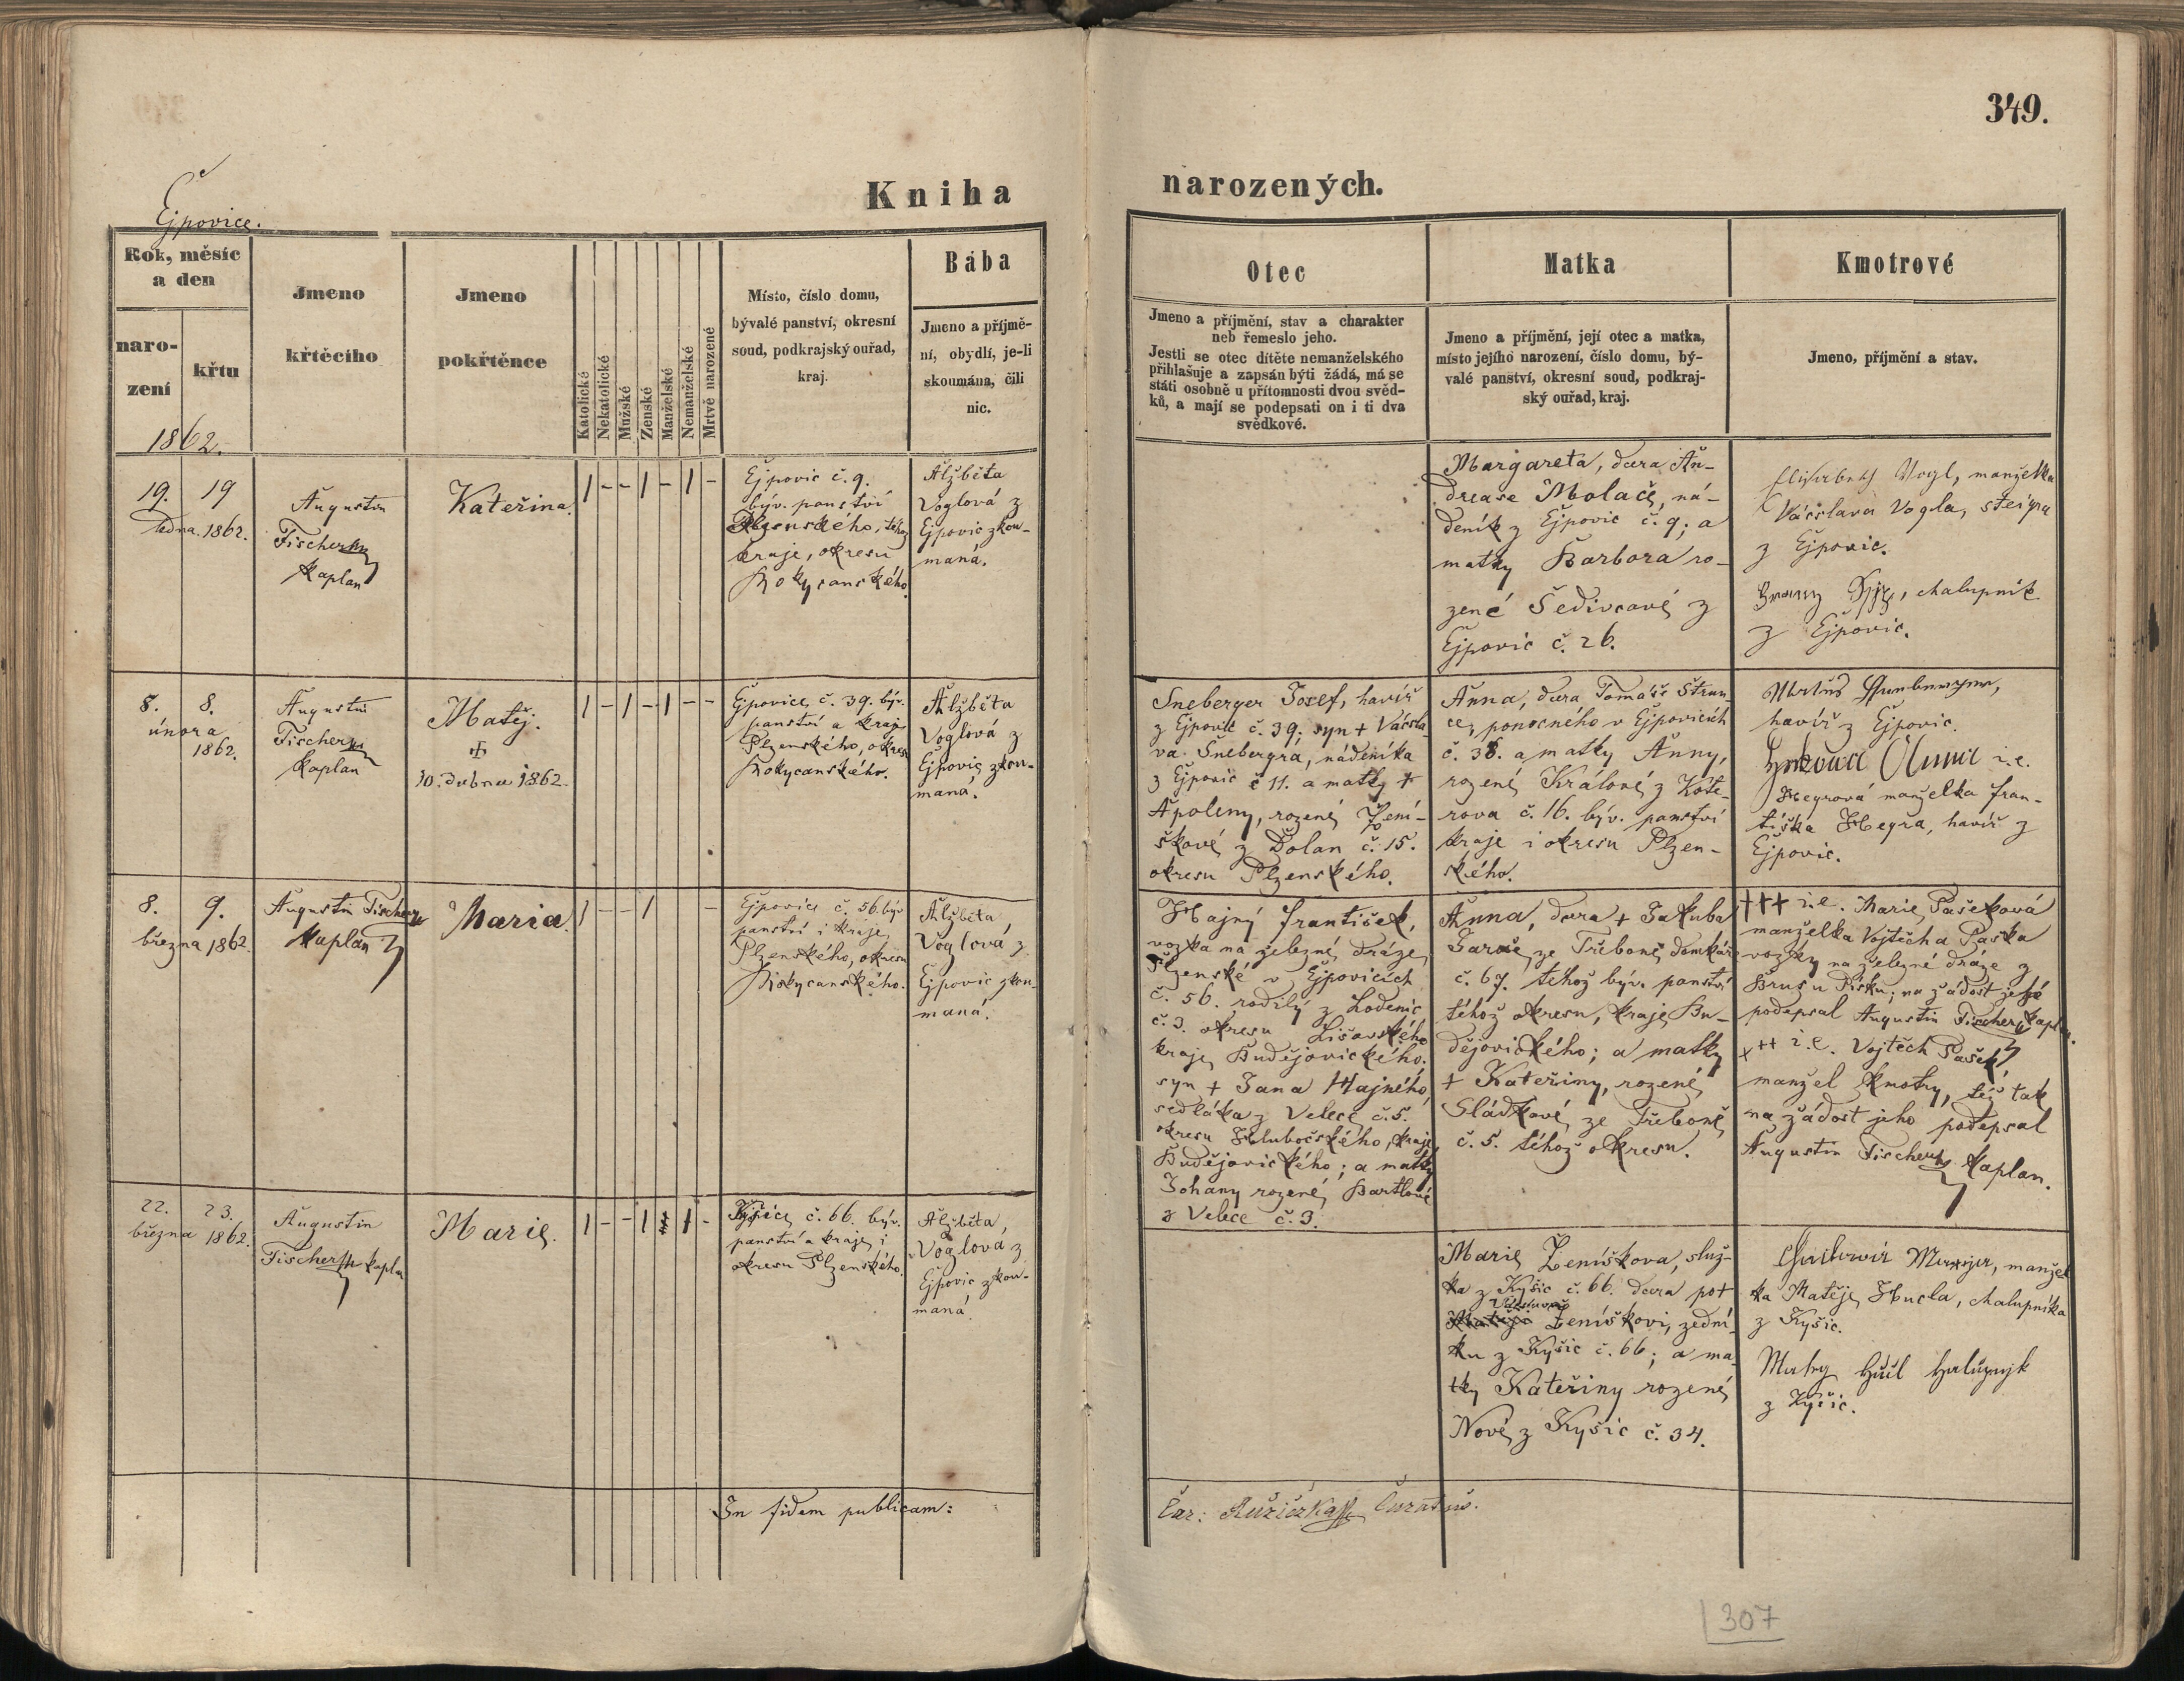 349.
Ejpovice.
Kniha narozených.
Rok, měsíc
a den
naro-
zení
křtu
1862.
Jmeno
křtěcího
Jmeno
pokřtěnce
Katolické
Nekatolické
Mužské
Ženské
Manželské
Nemanželské
Mrtvě narozené
Místo, číslo domu,
bývalé panství, okresní
soud, podkrajský ouřad,
kraj.
Bába
Jmeno a příjmě-
ní, obydlí, je-li
skoumána, čili
nic.
Otec
Jmeno a příjmění, stav a charakter
neb řemeslo jeho.
Jestli se otec dítěte nemanželského
přihlašuje a zapsán býti žádá, má se
státi osobně u přítomnosti dvou svěd-
ků, a mají se podepsati on i ti dva
svědkové.
Matka
Jmeno a příjmění, její otec a matka,
místo jejího narození, číslo domu, bý-
valé panství, okresní soud, podkraj-
ský ouřad, kraj.
Kmotrové
Jmeno, příjmění a stav.
19. 19
ledna. 1862.
Augustin
Fischer
kaplan
Kateřina.
1 - - 1 - 1 -
Ejpovic č. 9.
býv. panství
Plzenského, téhož
kraje, okresu
Rokycanského
Alžběta
Voglová z
Ejpovic zkou-
maná.
Margareta, dcera An-
drease Molače, ná-
deník z Ejpovic č. 9; a
matky Barbora ro-
zené Šedivcové z
Ejpovic č. 26.
Elisabeth Vogl, manželka
Václava Vogla, steigra
z Ejpovic.
chalupník
z Ejpovic.
8. 8.
února
1862.
Augustin
Fischer
kaplan
Matěj.
10. dubna 1862.
1 - 1 - 1 - -
Ejpovice č. 39. býv.
panství a kraje
Plzenského, okresu
Rokycanského.
Alžběta
Voglová z
Ejpovic zkou-
maná.
Sneberger Josef, havíř
z Ejpovic č. 39; syn + Václa-
va Šnebergra, nádeníka
z Ejpovic č 11. a matky +
Apoleny, rozené Žení-
škové z Dolan č. 15.
okresu Plzenského.
Anna, dcera Tomáše Strun-
ce, ponocného v Ejpovicích
č. 38. a matky Anny,
rozené Králové z Kote-
rova č. 16. býv. panství
kraje i okresu Plzen-
ského.
havíř z Ejpovic.
i.e.
Hegrová manželka Fran-
tiška Hegra, havíř z
Ejpovic.
8. 9.
března 1862.
Augustin Fischer
kaplan
Maria
1 - - 1 -
Ejpovice č. 56. býv
panství i kraje
Plzenského, okresu
Rokycanského.
Alžběta
Voglová z
Ejpovic zkou-
maná.
Hajný František,
vozka na železné dráze
Plzenské v Ejpovicích
č. 56. rodilý z Lodenic
č. 3. okresu Lišovského
kraje Budějovického.
syn + Jana Hajného
sedláka z Velece č. 5.
okresu Hlubočského, kraje
Budějovického; a matky
Johany rozené Bartlové
z Velece č. 3.
Anna, dcera + Jakuba
ze Třeboně, domkáře
č. 67. téhož býv. panství
téhož okresu, kraje Bu-
dějovického; a matky
+ Kateřiny, rozené
Sládkové ze Třeboně
č. 5. téhož okresu.
+++ i.e. Marie Pašeková
manželka Vojtěcha Paška
vozky na železné dráze z
Písku; na žádost její
podepsal Augustin Fischer kaplan.
x++ i.e. Vojtěch Pašek
manžel kmotry, též tak
na žádost jeho podepsal
Augustin Fischer kaplan.
22. 23.
března 1862.
Augustin
Fischer kaplan
Marie.
1 - - 1 1 -
Kyšice č. 66. býv.
panství a kraje i
okresu Plzenského.
Alžběta,
Voglová z
Ejpovic zkou-
maná
Marie Ženíškova, služ-
ka z Kyšic č. 66. dcera po +
Ženíškovi, zední-
ku z Kyšic č. 66; a ma-
tky Kateřiny rozené
Nové z Kyšic č. 34.
manžel
ka Matěje Hucla, chalupníka
z Kyšic.
z Kyšic.
In fidem publicam:
Car: Růžička Curatus.
307